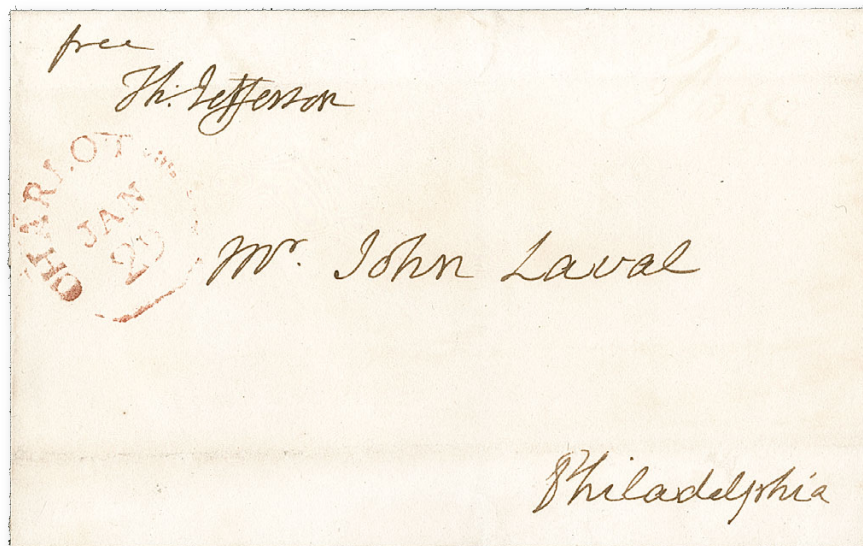 free
Th: Jefferson
CHARLOT
JAN
Mr. John Laval
Philadelphia